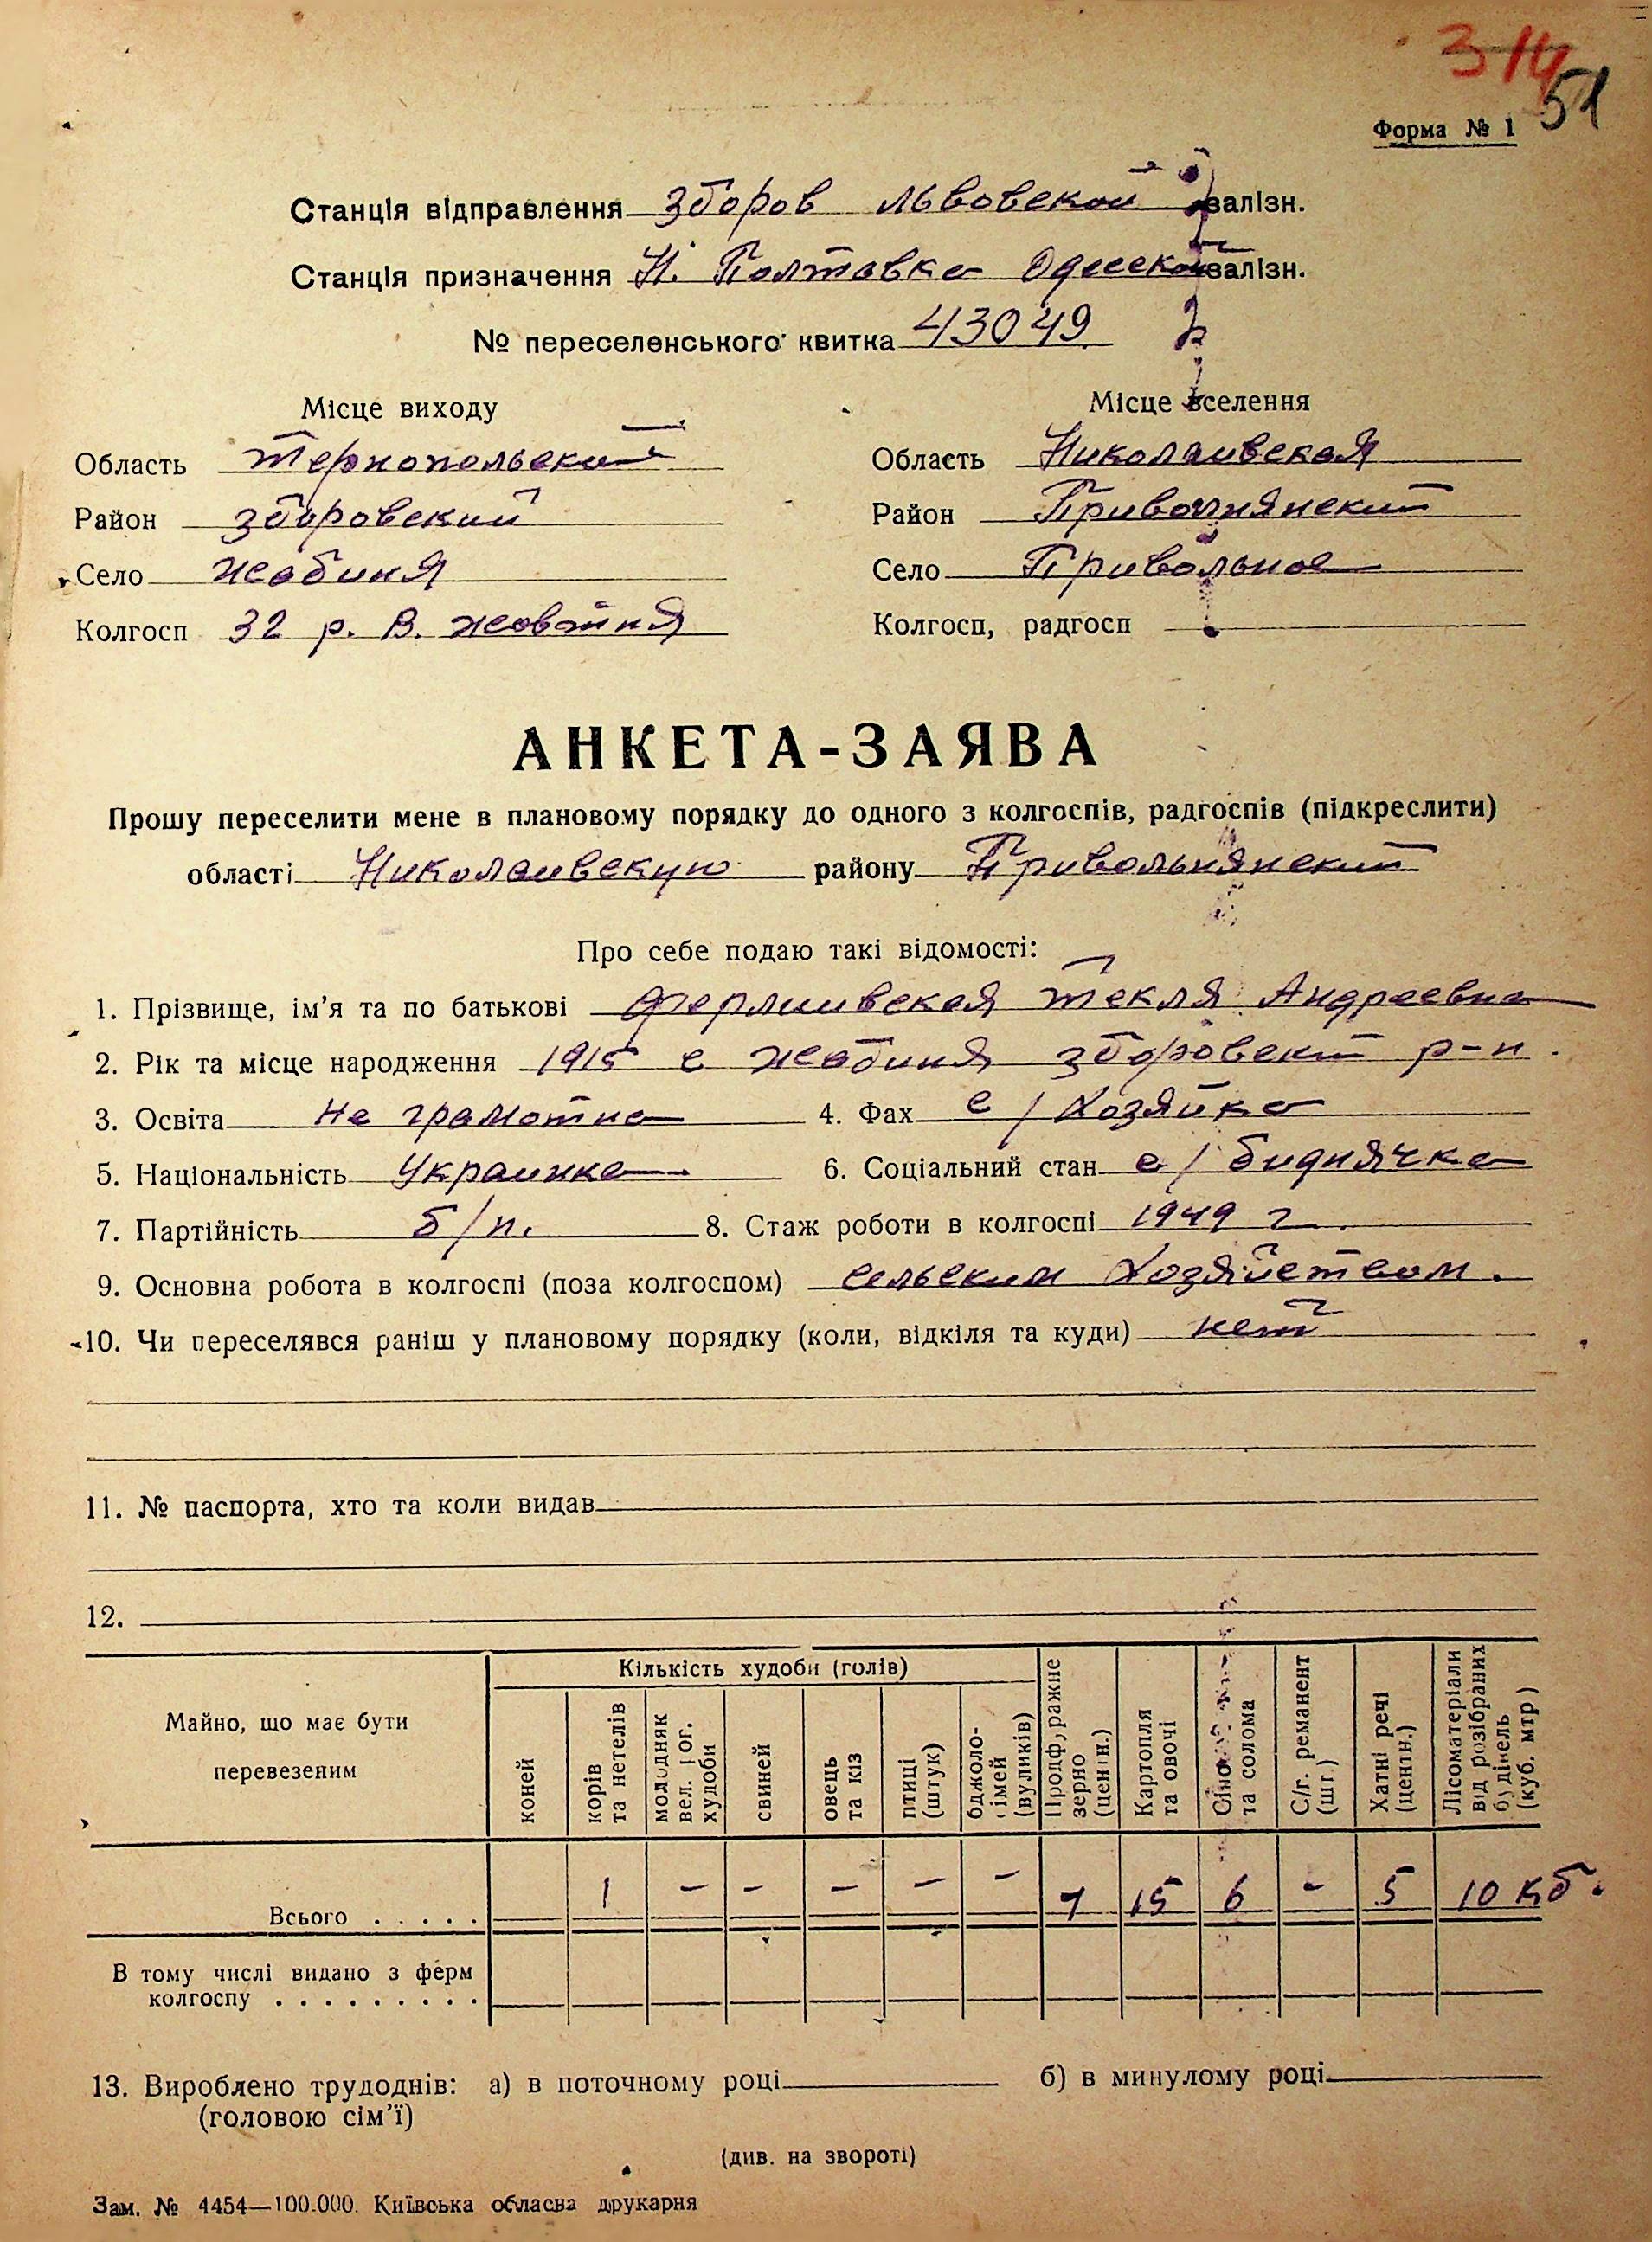 314
51
Форма № 1
Станція відправлення Зборов Львовской залізн.
Станція призначення Н. Полтавка Одесской залізн.
№ переселенського квитка 43049
Місце виходу
Місце вселення
Область Тернопольский
Область Николаивская
Район Зборовский
Район Привольнянский
Село Жабиня
Село Привольное
Колгосп 32 р. В. жовтня
Колгосп, радгосп
АНКЕТА-ЗАЯВА
Прошу переселити мене в плановому порядку до одного з колгоспів, радгоспів (підкреслити)
області Николаивскую району Привольнянский
Про себе подаю такі відомості:
1. Прізвище, ім'я та по батькові Ферлиивская Текля Андреевна
2. Рік та місце народження 1915 с Жабиня Зборовский р-н.
3. Освіта Не грамотна 4. Фах с/Хозяйка
5. Національність Украинка 6. Соціальний стан с/бидничка
7. Партійність б/п. 8. Стаж роботи в колгоспі 1949 г.
9. Основна робота в колгоспі (поза колгоспом) сельским Хозяйством.
10. Чи переселявся раніш у плановому порядку (коли, відкіля та куди) нет
11. № паспорта, хто та коли видав
12.
Майно, що має бути перевезеним
Кількість худоби (голів)
коней
корів та нетелів
молодняк вел. рог. худоби
свиней
овець та кіз
птиці (штук)
бджоло-сімей (вуликів)
Продф,ражне зерно (центн.)
Картопля та овочі
Сіно та солома
С/г. реманент (шт.)
Хатні речі (центн.)
Лісоматеріали від розібраних будівель (куб. мтр)
Всього . . . . . 1 – – – – – 7 15 6 - 5 10 кб.
В тому числі видано з ферм
колгоспу . . . . . . . . .
13. Вироблено трудоднів: а) в поточному році б) в минулому році
(головою сім'ї)
(див. на звороті)
Зам. № 4454—100.000. Київська обласна друкарня